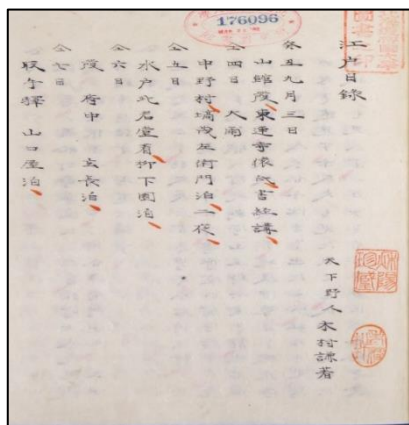 176096
江戸日錄
天下野人 木村謙著
癸丑九月三日
山館發東運寺依
書經講
仝四日 大雨
中野村塙茂左衛門泊二夜
仝五日
水戸
下園泊
仝六日
發 府中 玄長泊
仝七日
取手驛 山口屋泊